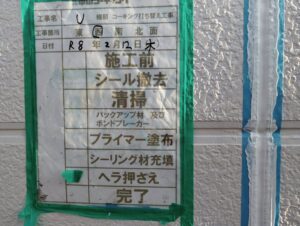 工事名 U 様邸 コーキング打ち替え工事
工事箇所 東 西 南 北面
日付 R8年2月12日木
施工前
シール撤去
清掃
バックアップ材 及び
ボンドブレーカー
プライマー塗布
シーリング材充填
ヘラ押さえ
完了